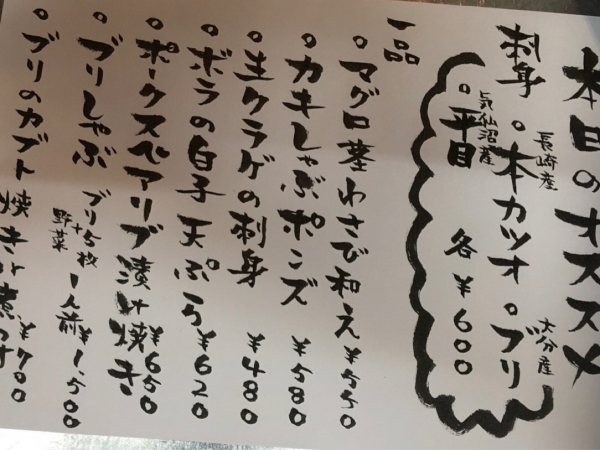 本日のオススメ
刺身 。長崎産 本カツオ 。大分産 ブリ
。気仙沼産 平目 各¥600
一品
。マグロ茎わさび和え ¥550
。カキしゃぶポンズ ¥580
。生クラゲの刺身 ¥480
。ボラの白子 天ぷら ¥620
。ポークスペアリブ漬け焼き ¥650
。ブリしゃぶ ブリ5枚+野菜 1人前 ¥1,500
。ブリのカブト 焼き 煮つけ ¥700